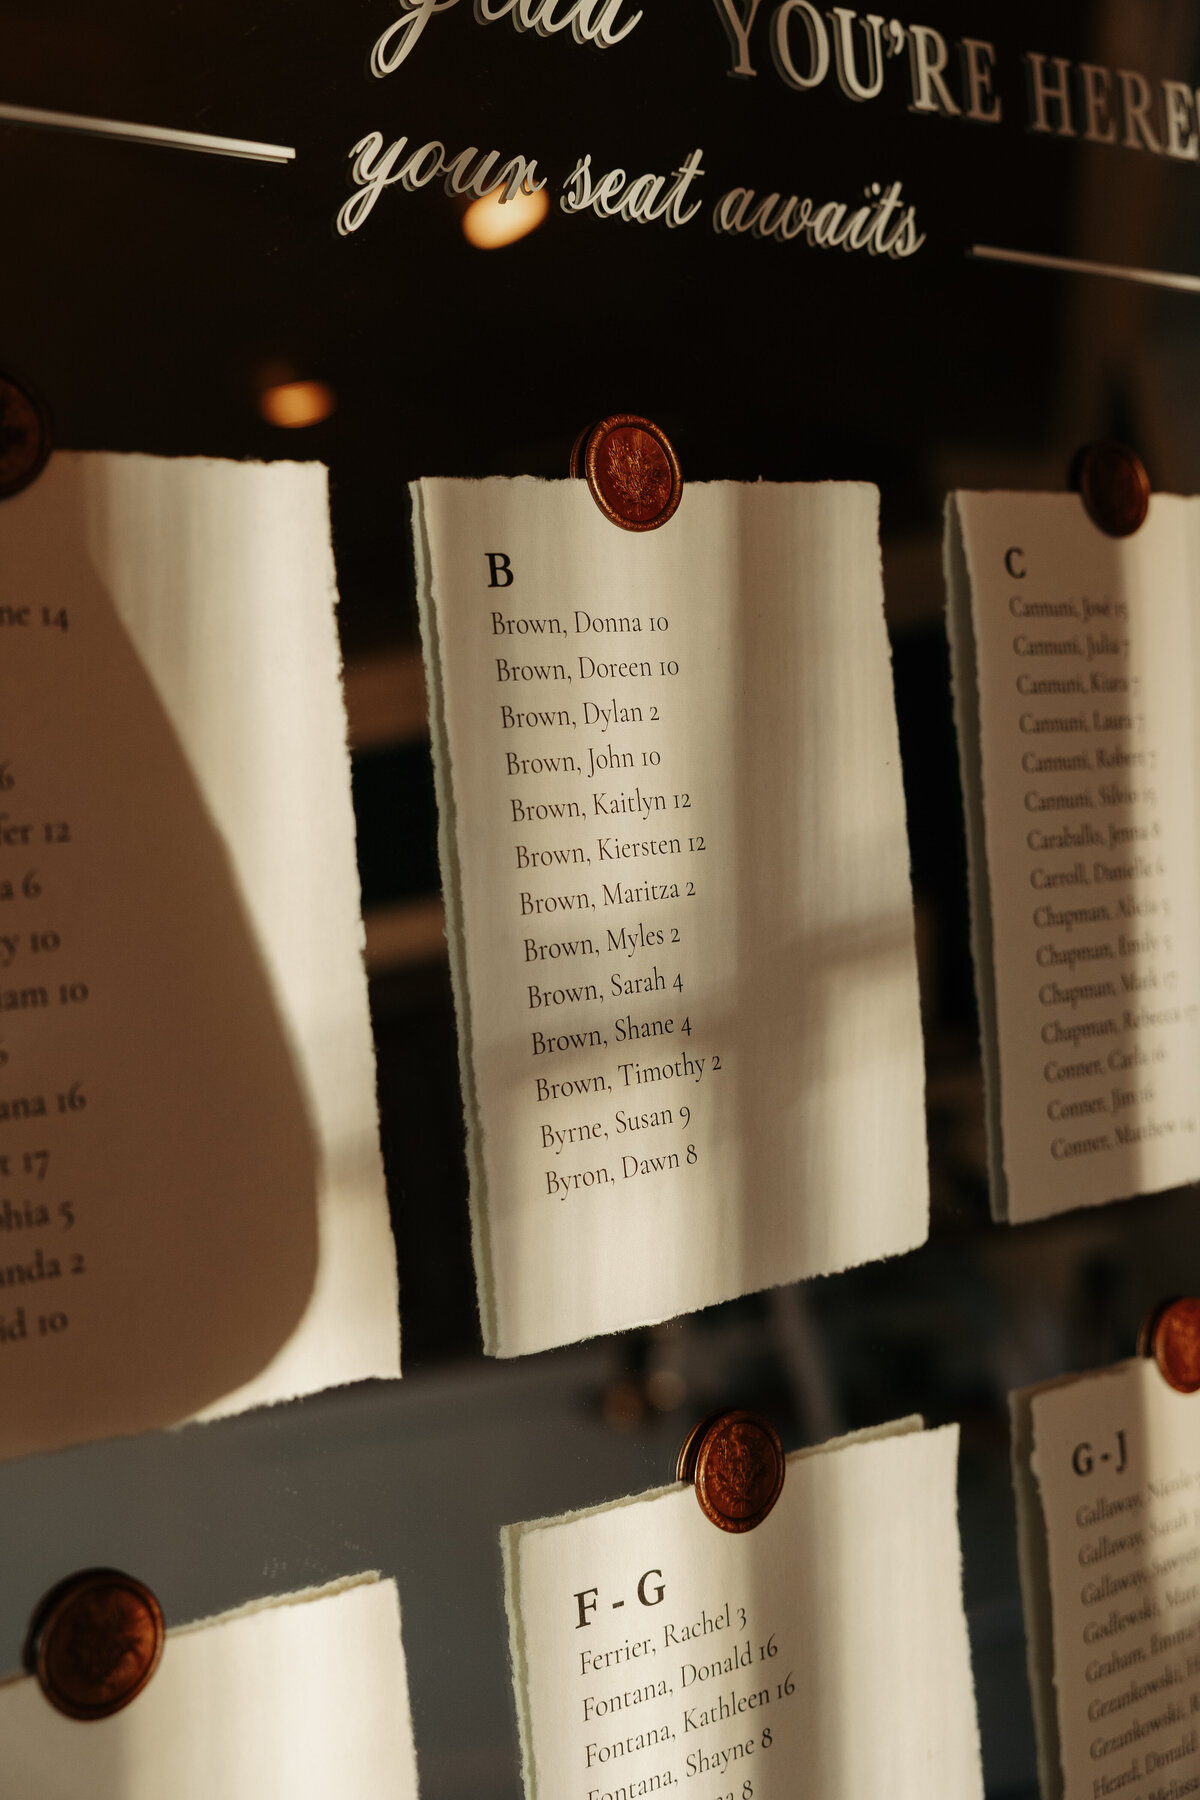 glad YOU'RE HERE
your seat awaits
14
6
12
6
10
10
16
17
5
2
10
B
Brown, Donna 10
Brown, Doreen 10
Brown, Dylan 2
Brown, John 10
Brown, Kaitlyn 12
Brown, Kiersten 12
Brown, Maritza 2
Brown, Myles 2
Brown, Sarah 4
Brown, Shane 4
Brown, Timothy 2
Byrne, Susan 9
Byron, Dawn 8
C
Cannuni, José 15
Cannuni, Julia 7
Cannuni, Kiara 7
Cannuni, Laura 7
Cannuni, Robert 7
Cannuni, Silvio 15
Caraballo, Jenna 8
Carroll, Danielle 6
Chapman, Alicia 5
Chapman, Emily 5
Chapman, Mark 17
Chapman, Rebecca 17
Conner, Carla 16
Conner, Jim 16
Conner, Matthew 14
F - G
Ferrier, Rachel 3
Fontana, Donald 16
Fontana, Kathleen 16
Fontana, Shayne 8
8
G - J
Gallaway, Nicole
Gallaway, Sarah
Gallaway, Sawyer
Godlewski,
Graham, Emma
Grzankowski,
Grzankowski,
Heard, Donald